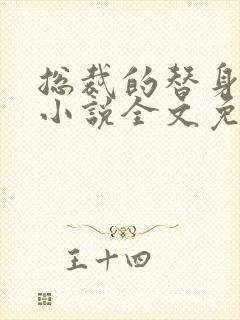 总裁的替身
小说全文免
王十四